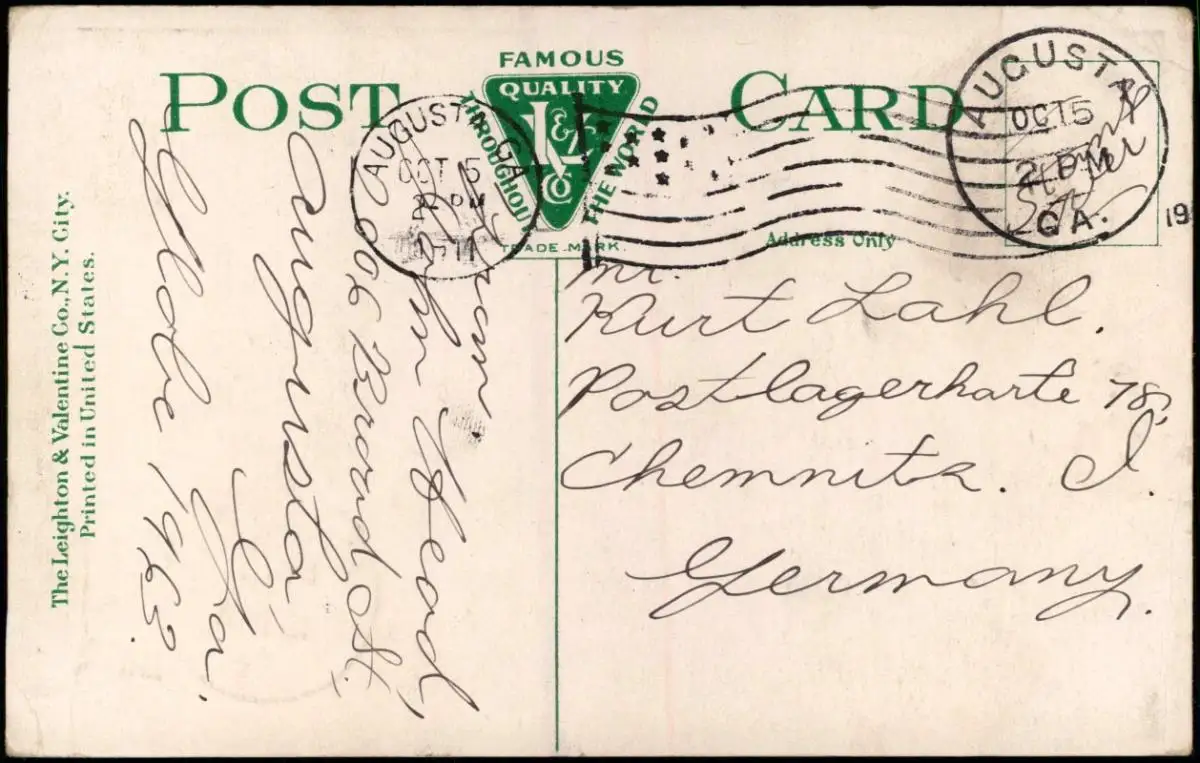 POST CARD
FAMOUS
QUALITY
THROUGHOUT THE WORLD
L & V Co
TRADE-MARK.
AUGUSTA, GA.
OCT 5
2 PM
1911
AUGUSTA
OCT 5
2 PM
GA.
19
Address Only
Mr.
Kurt Lahl.
Postlagerkarte 78,
Chemnitz. I.
Germany.
From
Head,
Broad St.,
Augusta
Ga.
Globe 1963.
The Leighton & Valentine Co., N.Y. City.
Printed in United States.